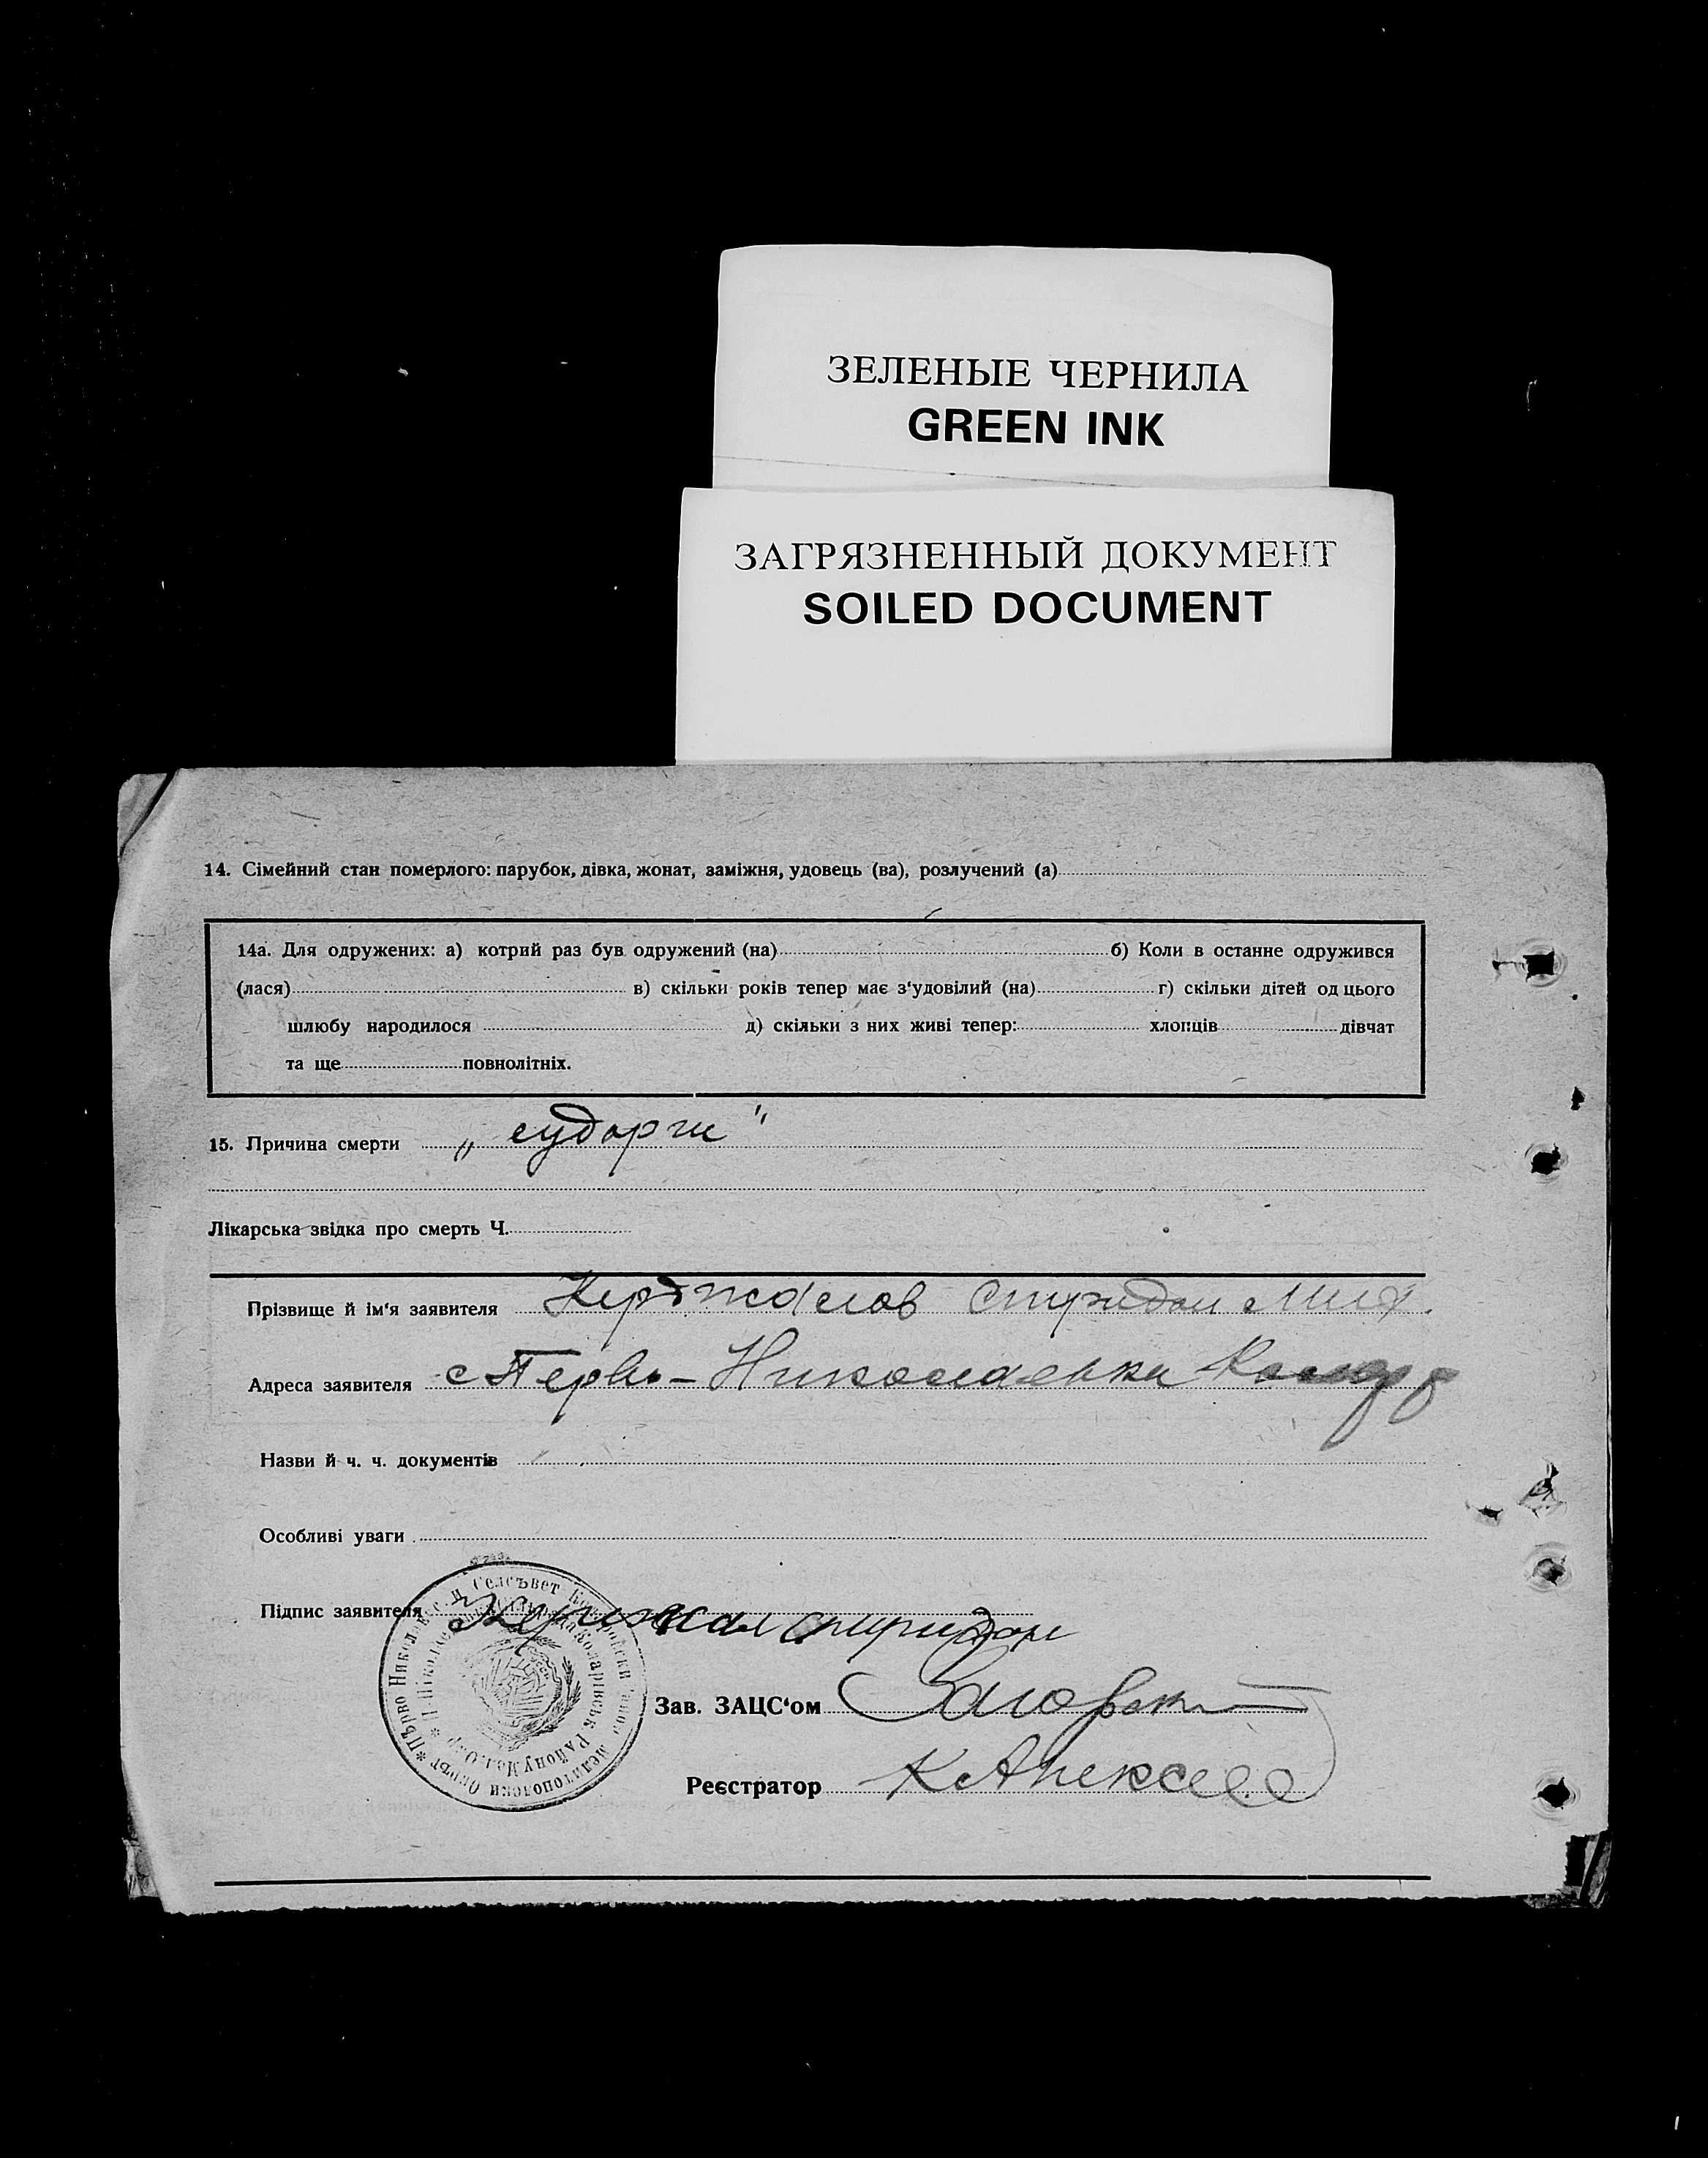 ЗЕЛЕНЫЕ ЧЕРНИЛА
GREEN INK
ЗАГРЯЗНЕННЫЙ ДОКУМЕНТ
SOILED DOCUMENT
14. Сімейний стан померлого: парубок, дівка, жонат, заміжня, удовець (ва), розлучений (а)
14а. Для одружених: а) котрий раз був одружений (на) б) Коли в останнє одружився
(лася) в) скільки років тепер має з'удовілий (на) г) скільки дітей од цього
шлюбу народилося д) скільки з них живі тепер: хлопців дівчат
та ще повнолітніх.
15. Причина смерти „судорги"
Лікарська звідка про смерть Ч.
Прізвище й ім'я заявителя Спиридон Мих.
Адреса заявителя с Перво-Николаевка
Назви й ч. ч. документів
Особливі уваги
Підпис заявителя спиридон
Зав. ЗАЦС'ом
Реєстратор